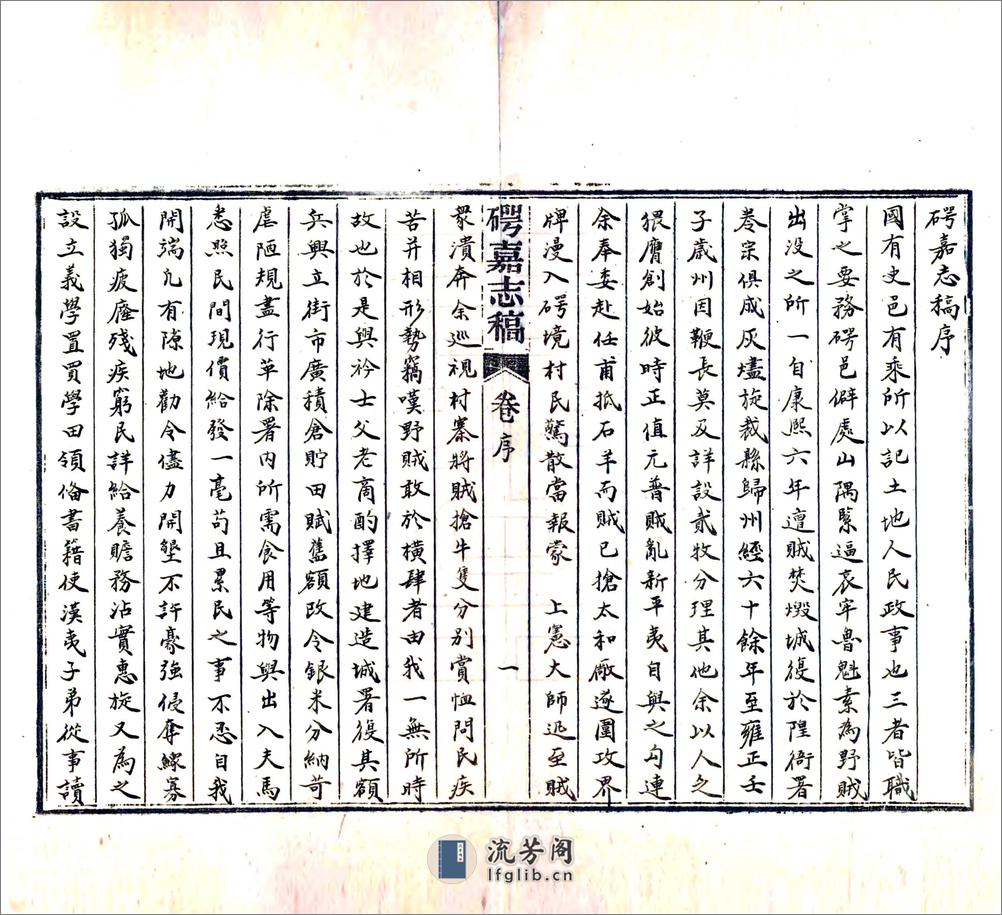 碍嘉志稿序
國有史邑有乘所以記土地人民政事也三者皆職
掌之要務碍邑僻處山隅緊逼哀牢魯魁素為野賊
出没之所一自康熙六年遭賊焚燬城復於隍衙署
卷宗俱成灰燼旋裁縣歸州經六十餘年至雍正壬
子歲州因鞭長莫及詳設貳牧分理其他余以人之
猥膺創始彼時正值元普賊亂新平夷目與之勾連
余奉委赴任甫抵石羊而賊已搶太和厰遂圍攻界
牌漫入碍境村民驚散當報蒙　上憲大師迅至賊
碍嘉志稿
卷序
一
衆潰奔余巡視村寨將賊搶牛隻分别賞恤問民疾
苦并相形勢竊嘆野賊敢於橫肆者由我一無所恃
故也於是與衿士父老商酌擇地建造城署復其額
兵興立街市廣積倉貯田賦舊額改令銀米分納苛
虐陋規盡行革除署内所需食用等物與出入夫馬
悉照民間現價給發一毫苟且累民之事不忍自我
開端凢有隙地勸令儘力開墾不許豪強侵奪鰥寡
孤獨疲癃殘疾窮民詳給養贍務沾實惠旋又為之
設立義學置買學田領俻書籍使漢夷子弟從事讀
流芳阁
lfglib.cn